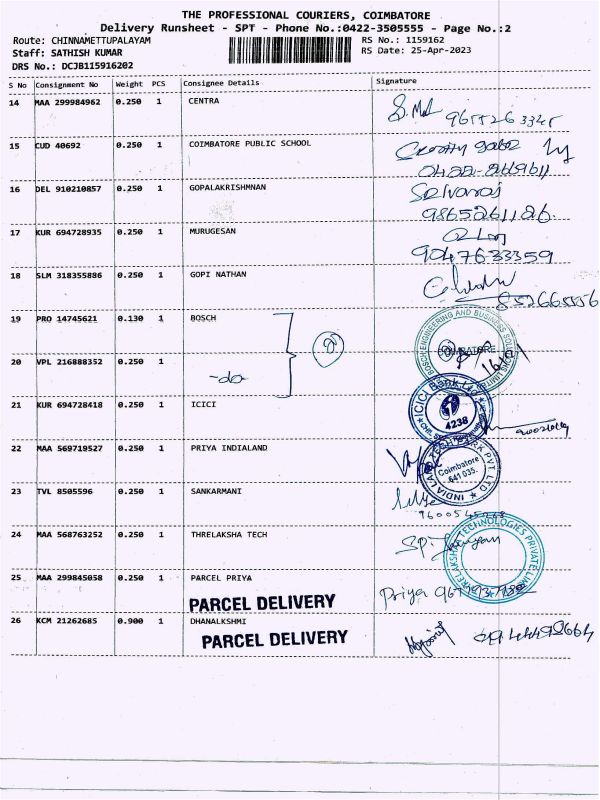 THE PROFESSIONAL COURIERS, COIMBATORE
Delivery Runsheet - SPT - Phone No.:0422-3505555 - Page No.:2
Route: CHINNAMETTUPALAYAM RS No.: 1159162
Staff: SATHISH KUMAR RS Date: 25-Apr-2023
DRS No.: DCJB115916202
S No Consignment No Weight PCS Consignee Details Signature
14 MAA 299984962 0.250 1 CENTRA
15 CUD 40692 0.250 1 COIMBATORE PUBLIC SCHOOL
16 DEL 910210857 0.250 1 GOPALAKRISHMNAN Selvaraj
9865261126
17 KUR 694728935 0.250 1 MURUGESAN
9047633359
18 SLM 318355886 0.250 1 GOPI NATHAN
19 PRO 14745621 0.130 1 BOSCH
BOSCH ENGINEERING AND BUSINESS SOLUTIONS LIMITED
COIMBATORE
20 VPL 216888352 0.250 1 -do-
21 KUR 694728418 0.250 1 ICICI
ICICI Bank Ltd
4238
22 MAA 569719527 0.250 1 PRIYA INDIALAND
INDIA LAND TECH PARK PVT LTD
Coimbatore
641 035.
23 TVL 8505596 0.250 1 SANKARMANI
24 MAA 568763252 0.250 1 THRELAKSHA TECH
THRELAKSHA TECHNOLOGIES PRIVATE LIMITED
25 MAA 299845058 0.250 1 PARCEL PRIYA Priya
PARCEL DELIVERY
26 KCM 21262685 0.900 1 DHANALKSHMI
PARCEL DELIVERY